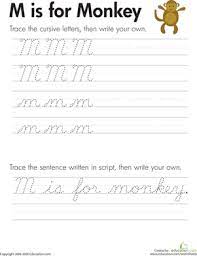 M is for Monkey
Trace the cursive letters, then write your own.
M M M
M M M
m m m
m m m
Trace the sentence written in script, then write your own.
M is for monkey.
Created by:
education.com